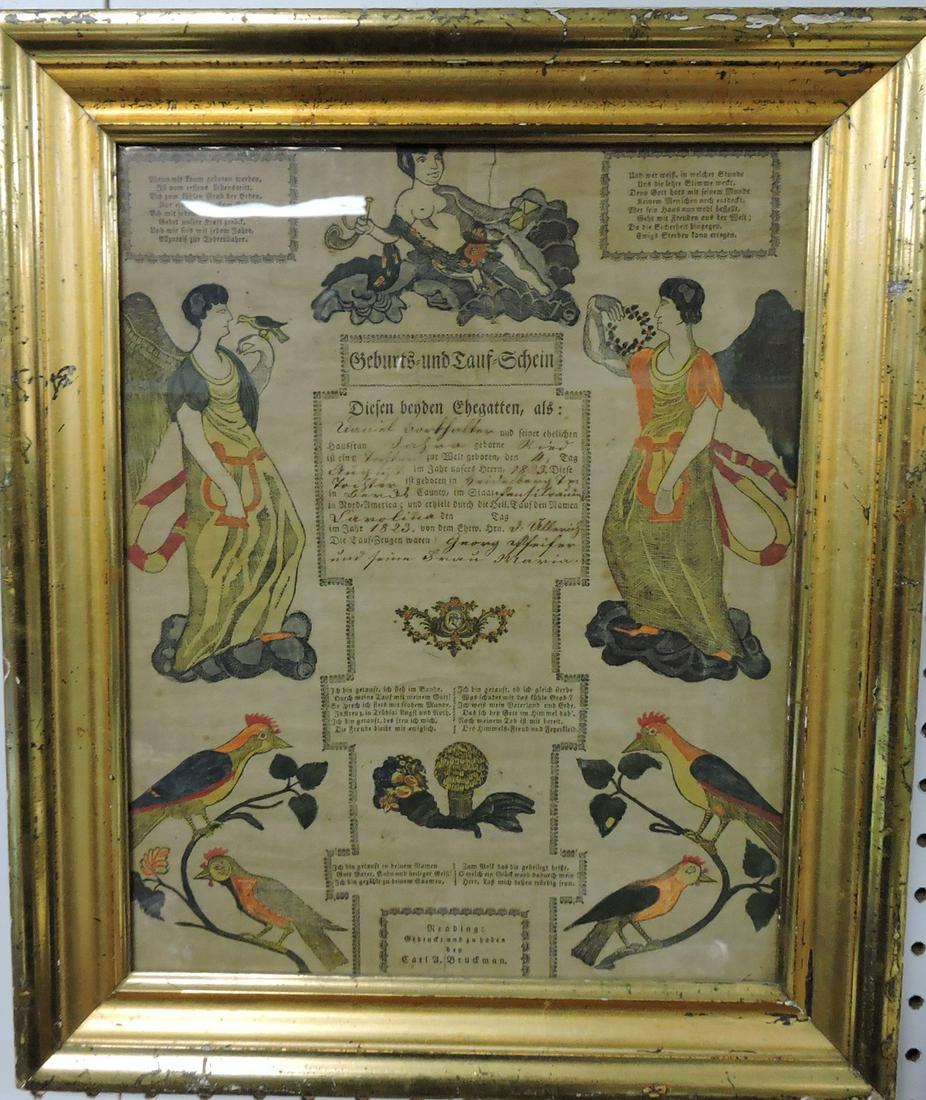 Wann wir kaum geboren werden,
Ist vom ersten Lebenstritt,
Bis zum kühlen Grab der Erden,
Nur ein
Ach mit jedem
Gehet unsre Kraft zurück,
Und wir sind mit jedem Jahre,
Allzureif zur Todtenbahre.
Und wer weiß, in welcher Stunde
Uns die letzte Stimme weckt,
Denn Gott hats mit seinem Munde
Keinem Menschen noch entdeckt.
Wer sein Haus nun wohl bestellt,
Geht mit Freuden aus der Welt;
Da die Sicherheit hingegen,
Ewigs Sterben kann erregen.
Geburts-und Tauf-Schein
Diesen beyden Ehegatten, als:
Daniel und seiner ehelichen
Hausfrau Sahra geborne Ried
ist ein Tochter zur Welt geboren, den 4. Tag
August im Jahr unsers Herrn, 1823. Diese
Tochter ist geboren in Heidelberg Tp.
in Berks County, im Staat Pensilvanien
in Nord-America; und erhielt durch die Heil. Tauf den Namen
Carolina den Tag
im Jahr 1823. von dem Ehrw. Hrn. D. Ullerich
Die Tauf-Zeugen waren Georg Pfeifer
und seine Frau Maria.
Ich bin getauft, ich steh im Bunde,
Durch meine Tauf mit meinem Gott!
So sprech ich stets mit frohem Munde,
In Kreuz, in Trübsal Angst und Noth,
Ich bin getauft, des freu ich mich,
Die Freude bleibt mir ewiglich.
Ich bin getauft, ob ich gleich sterbe
Was schadet mir das kühle Grab?
Ich weiß mein Vaterland und Erbe,
Das ich bey Gott im Himmel hab'.
Nach meinem Tod ist mir bereit,
Des Himmels-Freud und Feyerkleid.
Ich bin getauft in deinem Namen
Gott Vater, Sohn und heiliger Geist!
Ich bin gezählt zu deinem Saamen,
Zum Volk das dir geheiligt heißt.
O welch ein Glück ward dadurch mein
Herr, laß mich dessen würdig seyn.
Reading:
Gedruckt und zu haben
bey
Carl A. Bruckman.